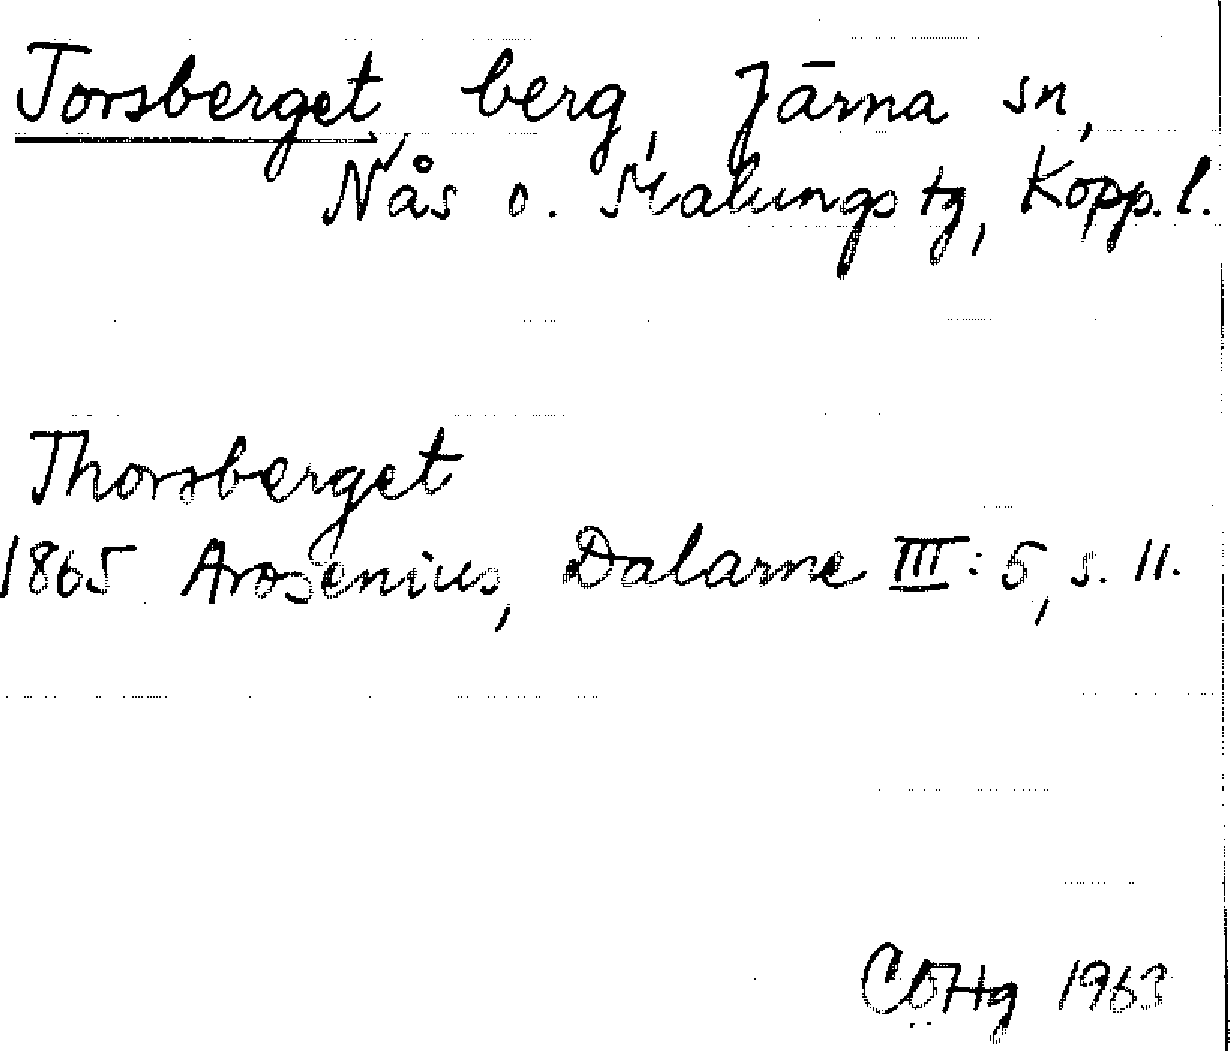 Torsberget, berg, Järna sn,
Nås o. Malungs tg, Kopp. l.
Thorsberget
1865 Arosenius, Dalarne III: 5, s. 11.
CÖHg 1963